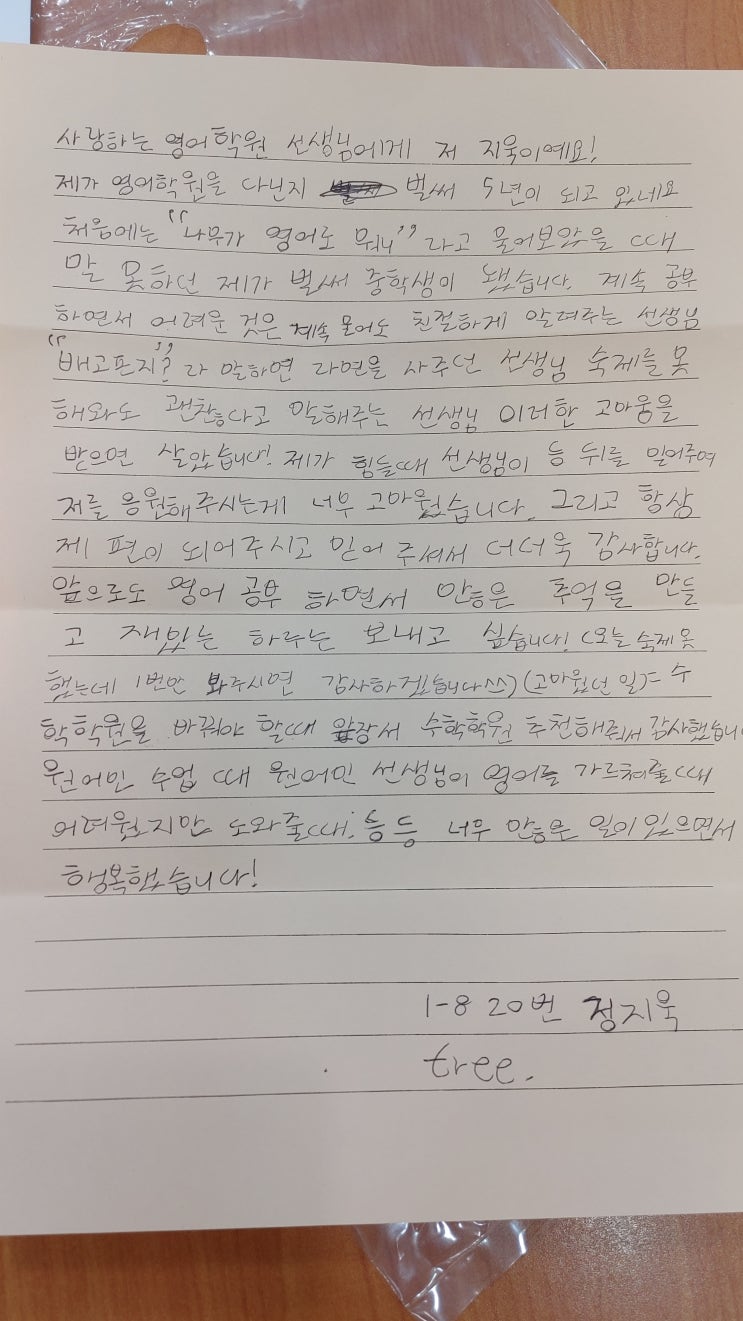 사랑하는 영어학원 선생님에게 저 지욱이예요!
제가 영어학원을 다닌지 벌써 5년이 되고 있네요
처음에는 "나무가 영어로 뭐니" 라고 물어보았을 때
말 못하던 제가 벌써 중학생이 됐습니다. 계속 공부
하면서 어려운 것은 계속 물어도 친절하게 알려주는 선생님
"배고픈지?" 라 말하면 라면을 사주던 선생님 숙제를 못
해와도 괜찮다고 말해주는 선생님 이러한 고마움을
받으면 살았습니다! 제가 힘들때 선생님이 등 뒤를 밀어주며
저를 응원해주시는게 너무 고마웠습니다. 그리고 항상
제 편이 되어주시고 믿어 주셔서 더더욱 감사합니다.
앞으로도 영어 공부 하면서 많은 추억을 만들
고 재밌는 하루는 보내고 싶습니다! (오늘 숙제 못
했는데 1번만 봐주시면 감사하겠습니다쓰) (고마웠던 일)= 수
학학원을 바꿔야 할때 앞장서 수학학원 추천해줘서 감사했습니
원어민 수업 때 원어민 선생님이 영어를 가르쳐줄때
어려웠지만 도와줄때, 등등 너무 많은 일이 있으면서
행복했습니다!
1-8 20번 정지욱
tree.